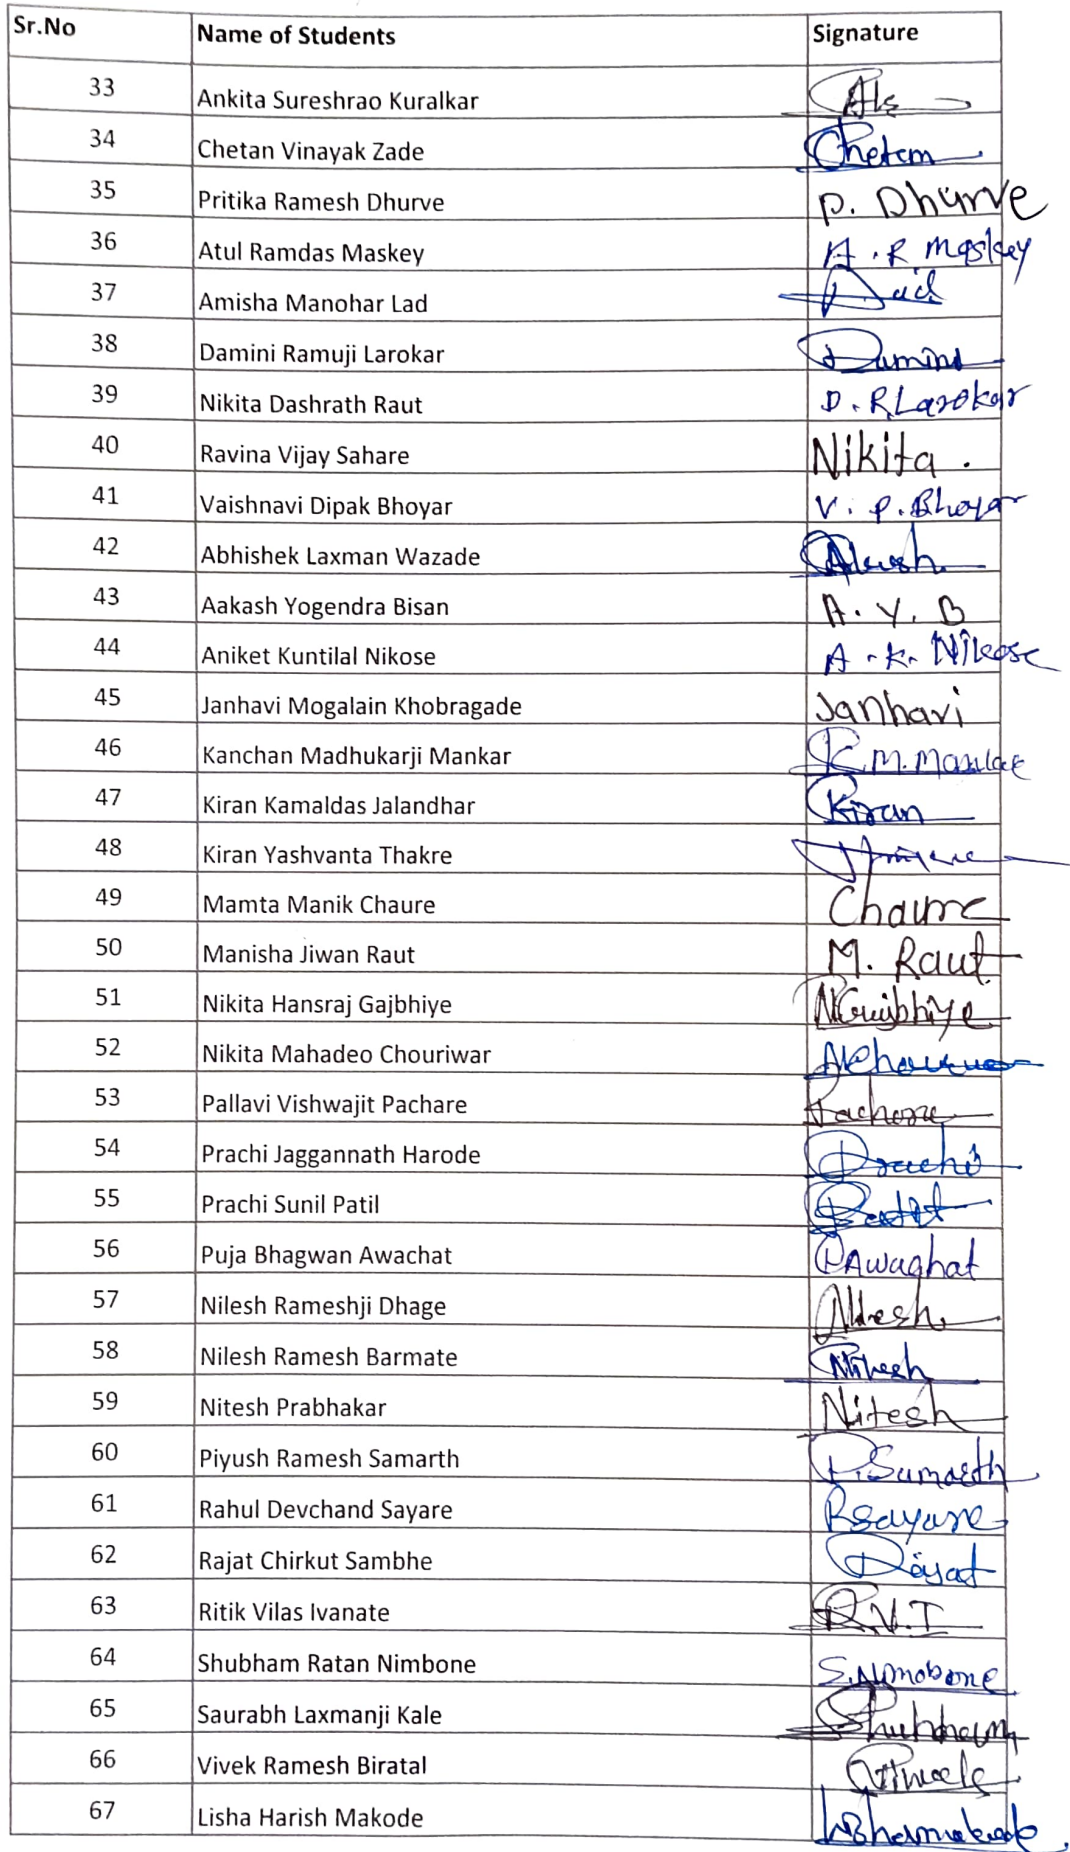 Sr.No Name of Students Signature
33 Ankita Sureshrao Kuralkar
34 Chetan Vinayak Zade Chetan
35 Pritika Ramesh Dhurve P. Dhurve
36 Atul Ramdas Maskey A. R Maskey
37 Amisha Manohar Lad
38 Damini Ramuji Larokar Damini
39 Nikita Dashrath Raut D. R Larokar
40 Ravina Vijay Sahare Nikita .
41 Vaishnavi Dipak Bhoyar V. P. Bhoyar
42 Abhishek Laxman Wazade
43 Aakash Yogendra Bisan A. Y. B
44 Aniket Kuntilal Nikose A. K. Nikose
45 Janhavi Mogalain Khobragade Janhavi
46 Kanchan Madhukarji Mankar K. M. Mankar
47 Kiran Kamaldas Jalandhar Kiran
48 Kiran Yashvanta Thakre
49 Mamta Manik Chaure Chaure
50 Manisha Jiwan Raut M. Raut
51 Nikita Hansraj Gajbhiye NGajbhiye
52 Nikita Mahadeo Chouriwar
53 Pallavi Vishwajit Pachare Pachare
54 Prachi Jaggannath Harode Prachi
55 Prachi Sunil Patil
56 Puja Bhagwan Awachat PAwaghat
57 Nilesh Rameshji Dhage Nilesh
58 Nilesh Ramesh Barmate Nilesh
59 Nitesh Prabhakar Nitesh
60 Piyush Ramesh Samarth P. Samarth
61 Rahul Devchand Sayare RSayare
62 Rajat Chirkut Sambhe Rajat
63 Ritik Vilas Ivanate R.V.I
64 Shubham Ratan Nimbone S.Nimobone
65 Saurabh Laxmanji Kale Shubham
66 Vivek Ramesh Biratal
67 Lisha Harish Makode